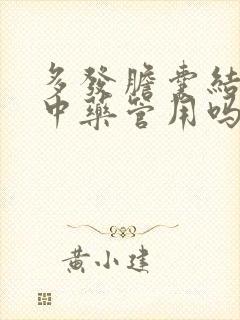 多發膽囊結
中藥管用吗
黄小建